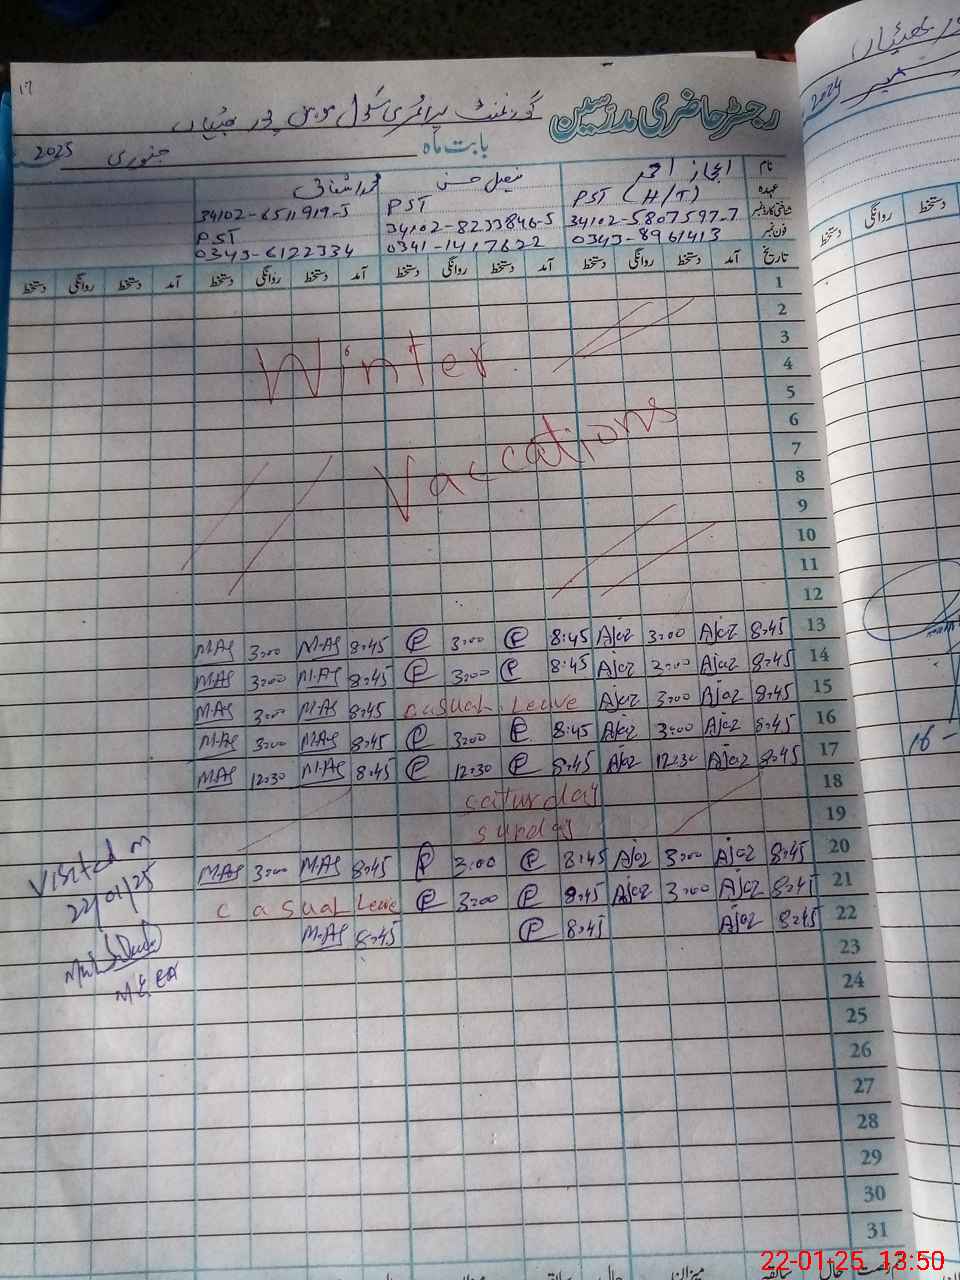 17
رجسٹر حاضری مدرسین گورنمنٹ پرائمری سکول
بابت ماہ جنوری 2025
نام اعجاز احمد
عہدہ PST (H/T) PST PST
شناختی کارڈ نمبر 34102-5807597-7 34102-8233846-5 34102-6511919-5
فون نمبر 0343-8961413 0341-1417622 0343-6122334
تاریخ آمد دستخط روانگی دستخط آمد دستخط روانگی دستخط آمد دستخط روانگی دستخط آمد دستخط روانگی دستخط
1
2
3
Winter
4
5
6
Vaccations
7
8
9
10
11
12
M.AS 3:00 M.AS 8:45 3:00 8:45 Ajaz 3:00 Ajaz 8:45 13
M.AS 3:00 M.AS 8:45 3:00 8:45 Ajaz 3:00 Ajaz 8:45 14
M.AS 3:00 M.AS 8:45 casual Leave Ajaz 3:00 Ajaz 8:45 15
M.AS 3:00 M.AS 8:45 3:00 8:45 Ajaz 3:00 Ajaz 8:45 16
M.AS 12:30 M.AS 8:45 12:30 8:45 Ajaz 12:30 Ajaz 8:45 17
saturday 18
sunday 19
M.AS 3:00 M.AS 8:45 3:00 8:45 Ajaz 3:00 Ajaz 8:45 20
casual Leave 3:00 8:45 Ajaz 3:00 Ajaz 8:45 21
M.AS 8:45 8:45 Ajaz 8:45 22
Visited on
22/01/25
MEA
23
24
25
26
27
28
29
30
31
میزان حال سابقہ
2024
دستخط روانگی دستخط
16-
22-01-25 13:50